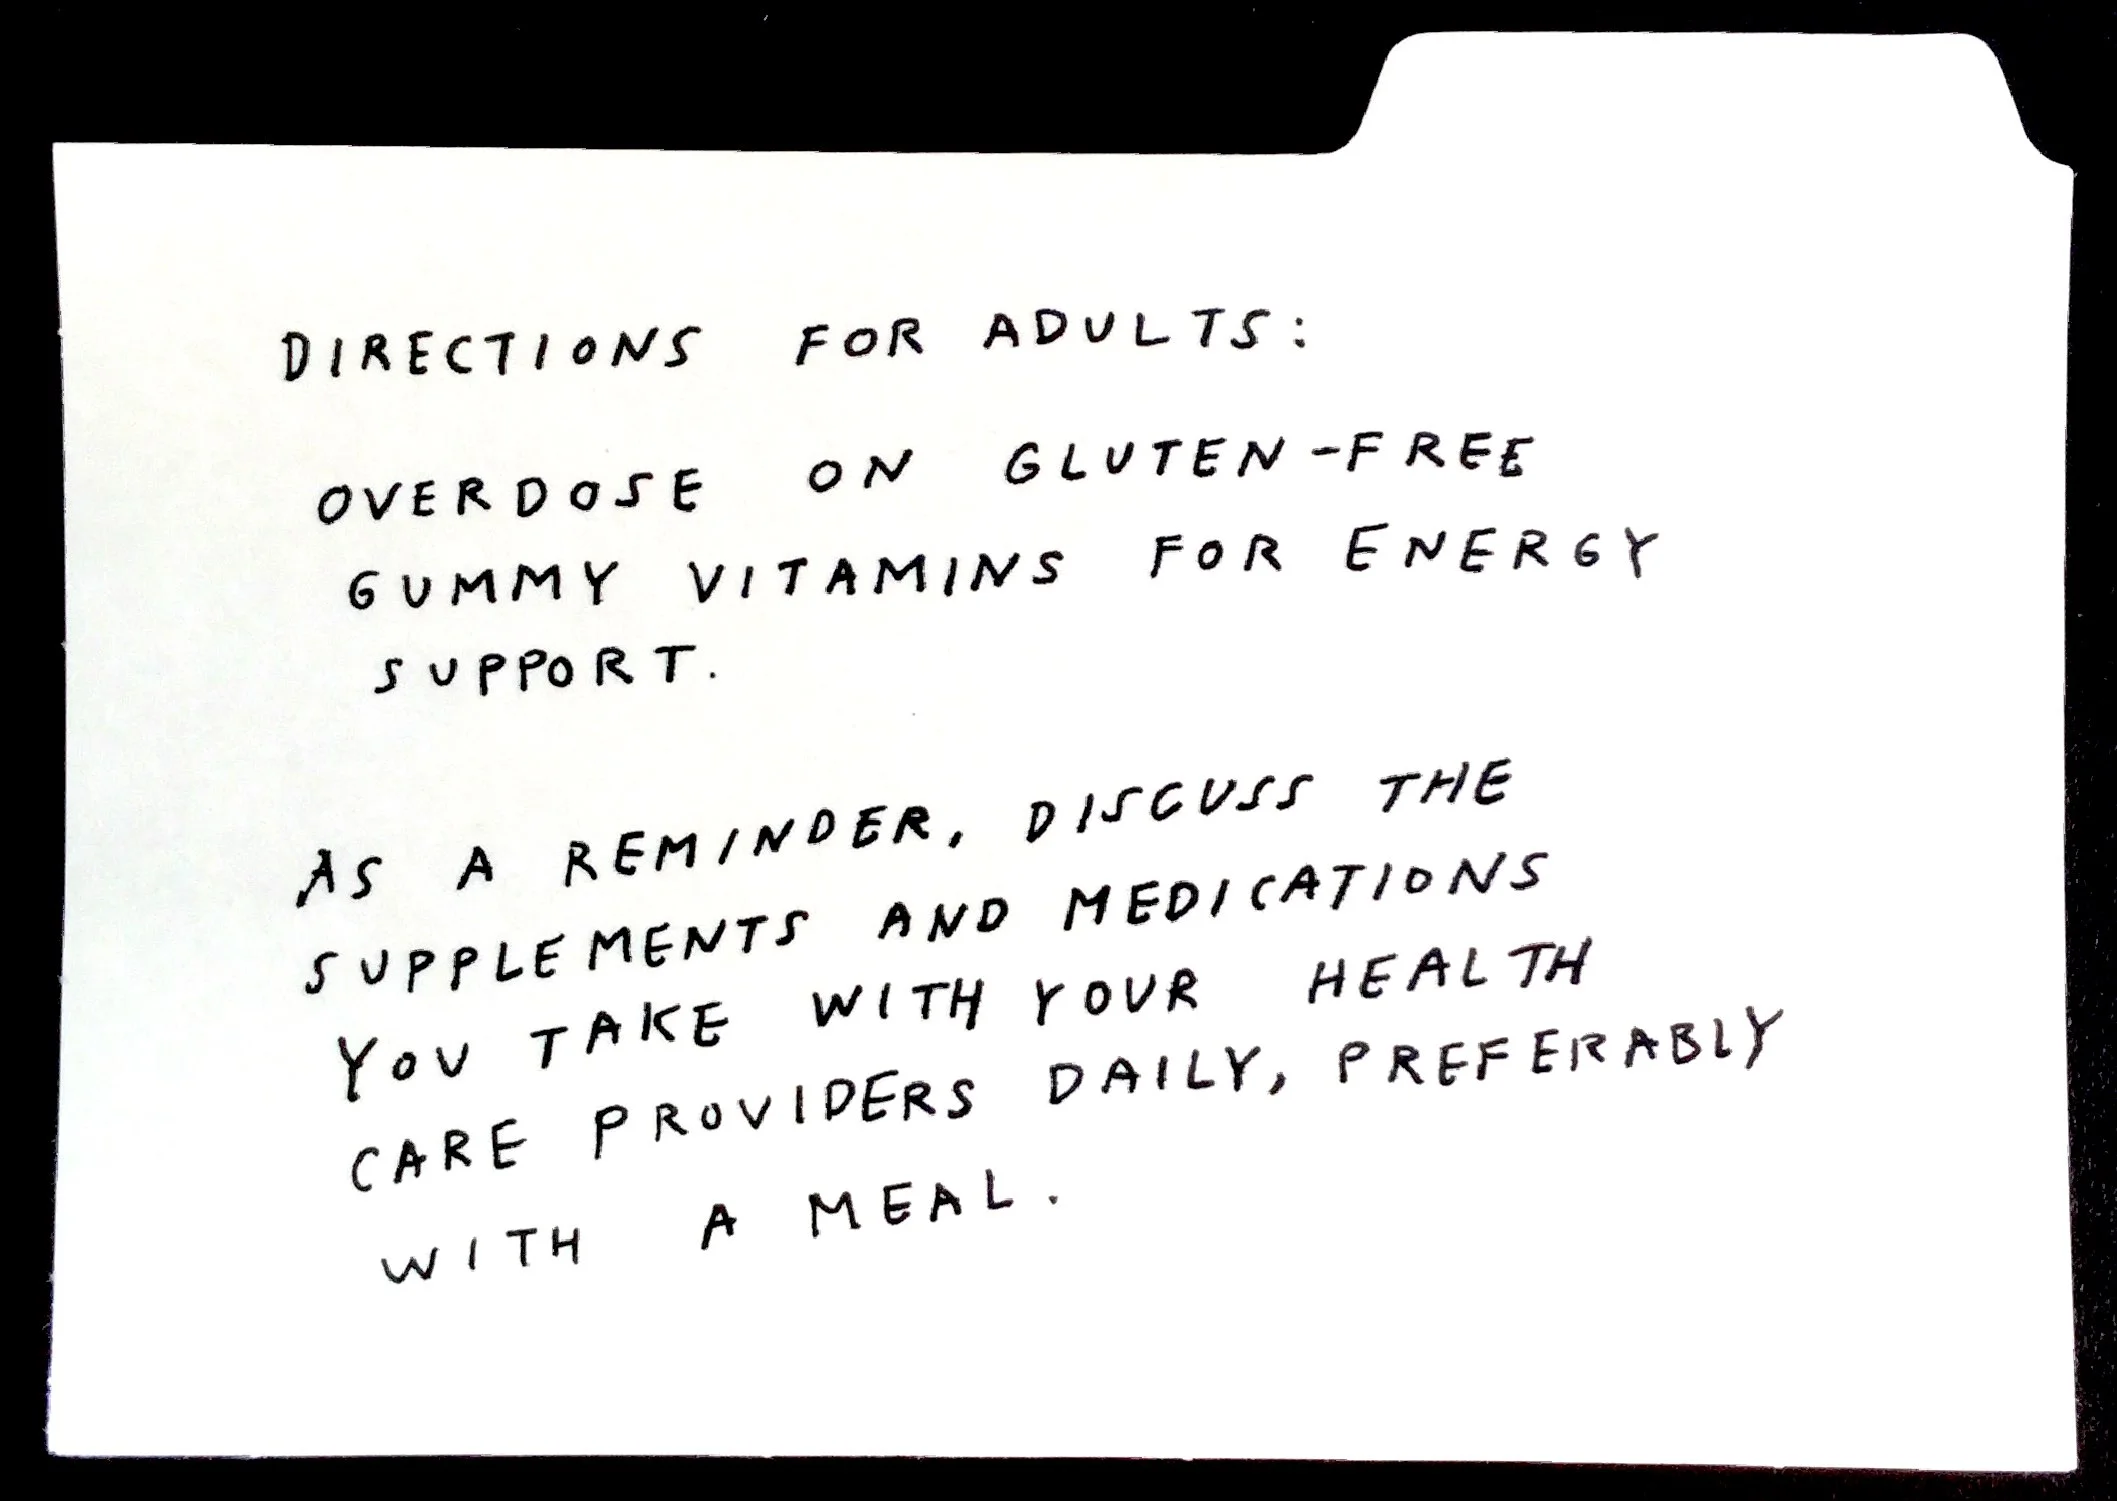 DIRECTIONS FOR ADULTS:
OVERDOSE ON GLUTEN-FREE
GUMMY VITAMINS FOR ENERGY
SUPPORT.
AS A REMINDER, DISCUSS THE
SUPPLEMENTS AND MEDICATIONS
YOU TAKE WITH YOUR HEALTH
CARE PROVIDERS DAILY, PREFERABLY
WITH A MEAL.